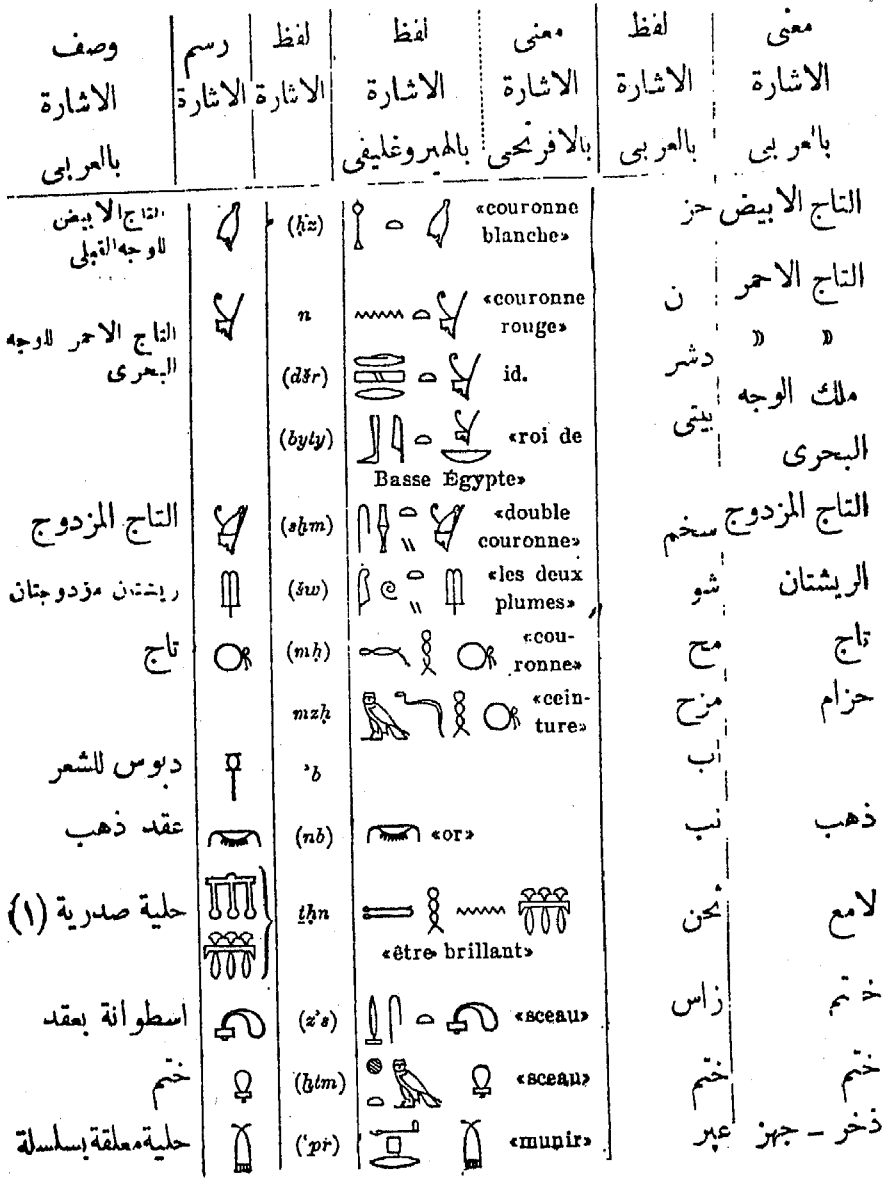 معنى الاشارة بالعربى | لفظ الاشارة بالعربى | معنى الاشارة بالافرنجى | لفظ الاشارة بالهيروغليفى | لفظ الاشارة | رسم الاشارة | وصف الاشارة بالعربى
التاج الابيض | حز | «couronne blanche» | (ḥz) | التاج الابيض للوجه القبلى
التاج الاحمر | ن | «couronne rouge» | n | التاج الاحمر للوجه البحرى
» » | دشر | id. | (dšr)
ملك الوجه البحرى | بيتى | «roi de Basse Égypte» | (byty)
التاج المزدوج | سخم | «double couronne» | (sḫm) | التاج المزدوج
الريشتان | شو | «les deux plumes» | (šw) | ريشتان مزدوجتان
تاج | مح | «couronne» | (mḥ) | تاج
حزام | مزح | «ceinture» | mzḥ
اب | ʾb | دبوس للشعر
ذهب | نب | «or» | (nb) | عقد ذهب
لامع | نحن | «être brillant» | ṯḥn | حلية صدرية (١)
ختم | زاس | «sceau» | (zʾs) | اسطوانة بعقد
ختم | ختم | «sceau» | (ḫtm) | ختم
ذخر – جهز | عپر | «munir» | (ʿpr) | حلية معلقة بسلسلة